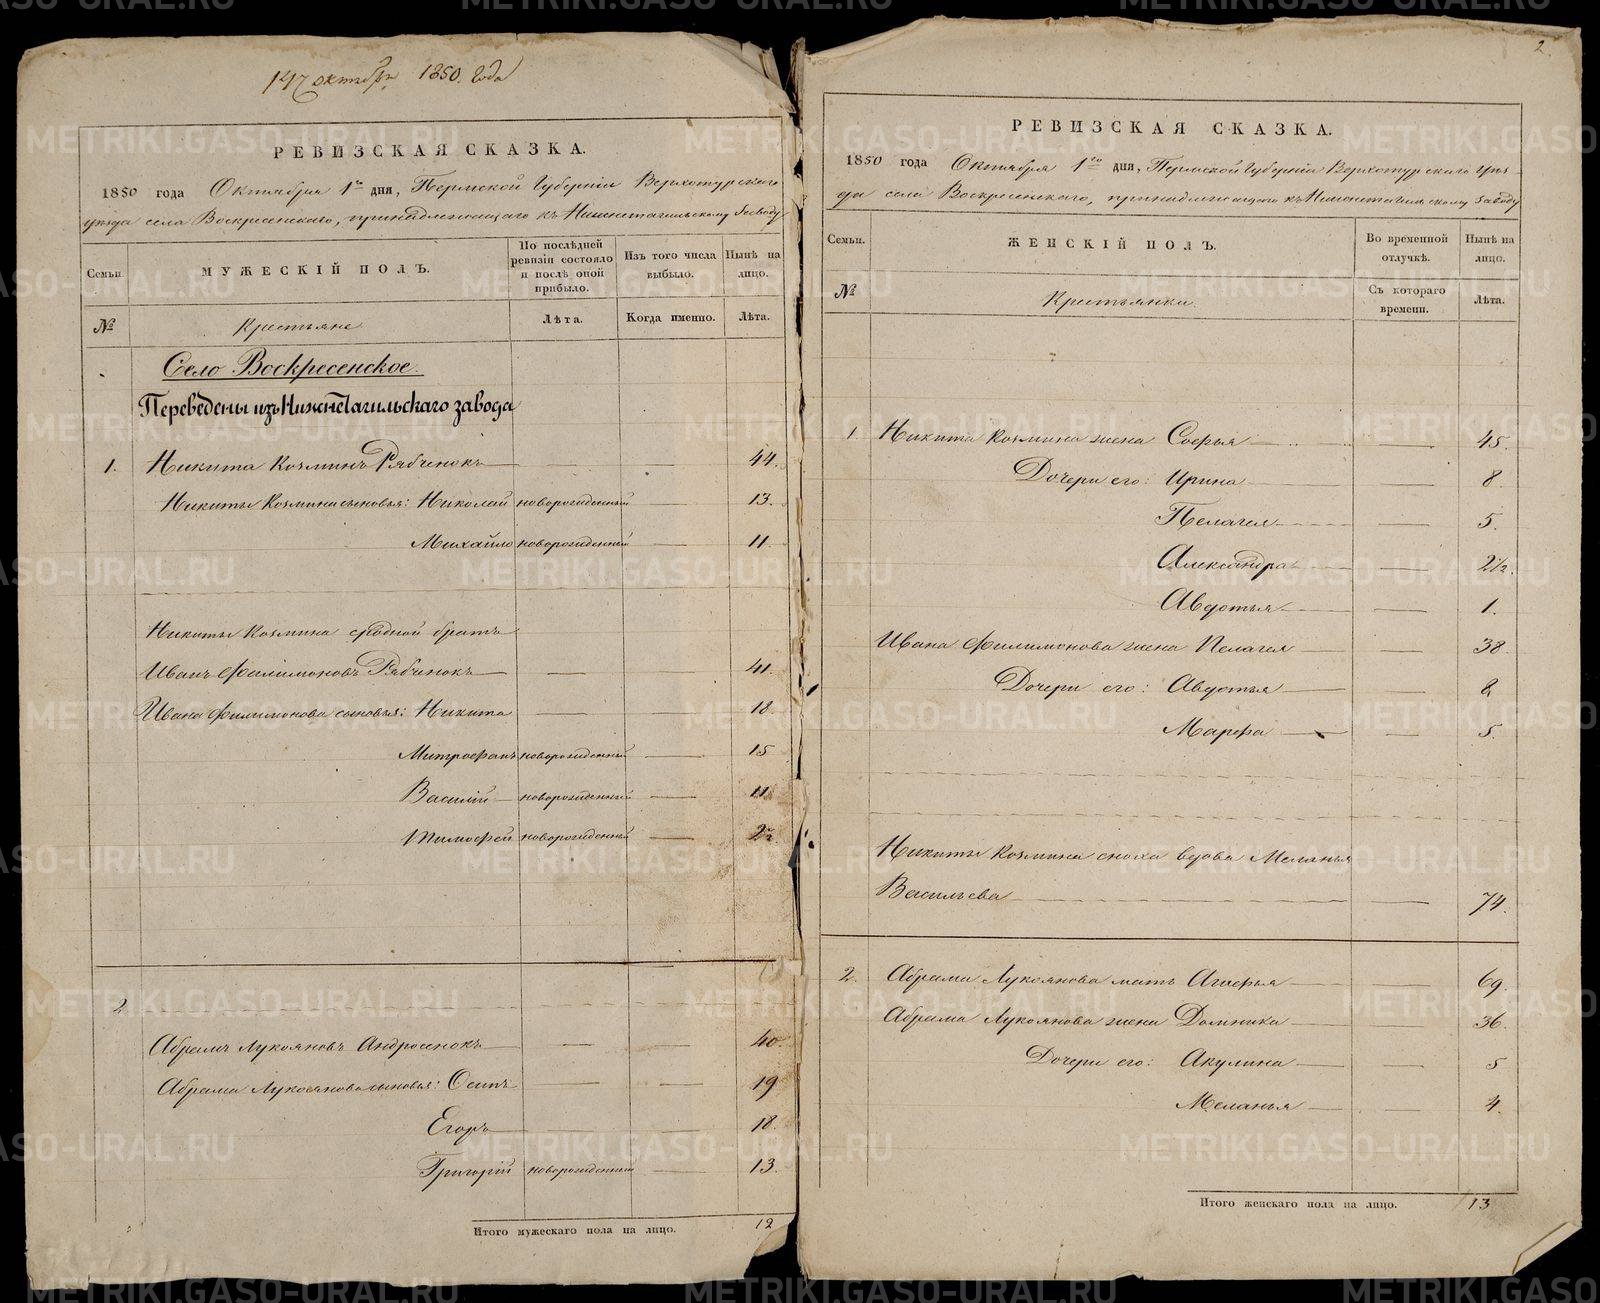 147 октября 1850. Года
РЕВИЗСКАЯ СКАЗКА.
1850 года Октября 1го дня, Пермской Губерніи Верхотурскаго
уѣзда села Воскресенскаго, принадлежащаго къ Нижнетагильскому Заводу
Семьи.
МУЖЕСКІЙ ПОЛЪ.
По послѣдней ревизіи состояло и послѣ оной прибыло.
Изъ того числа выбыло.
Нынѣ на лицо.
№
Крестьяне
Лѣта.
Когда именно.
Лѣта.
Село Воскресенское.
Переведены изъ Нижнетагильскаго завода
1. Никита Козминъ Рябченокъ — 44.
Никиты Козмина сыновья: Николай новорожденный — 13.
Михайло новорожденный — 11.
Никиты Козмина сродной братъ
Иванъ Филимоновъ Рябченокъ — 41.
Ивана Филимонова сыновья: Никита — 18.
Митрофанъ новорожденный — 15
Василій — новорожденный — 11
Тимофей новорожденный — 2½
2
Абрамъ Лукояновъ Андросенокъ — 40.
Абрама Лукоянова сыновья: Осипъ — 19
Егоръ — 18.
Григорій новорожденный — 13.
Итого мужескаго пола на лицо. 12
2.
РЕВИЗСКАЯ СКАЗКА.
1850 года Октября 1го дня, Пермской Губерніи Верхотурскаго Уѣз-
да села Воскресенскаго, принадлежащаго къ Нижнетагильскому Заводу
Семьи.
ЖЕНСКІЙ ПОЛЪ.
Во временной отлучкѣ.
Нынѣ на лицо.
№
Крестьянки
Съ котораго времени.
Лѣта.
1. Никита Козмина жена Софья — 45.
Дочери его: Ирина — 8.
Пелагея — 5.
Александра — 2½.
Авдотья — 1.
Ивана Филимонова жена Пелагея — 38.
Дочери его: Авдотья — 8
Марфа — 5.
Никиты Козмина сноха вдова Меланья
Васильева — 74.
2. Абрама Лукоянова мать Агафья — 69.
Абрама Лукоянова жена Домника — 36.
Дочери его: Акулина — 5
Меланья — 4.
Итого женскаго пола на лицо. 13
METRIKI.GASO-URAL.RU